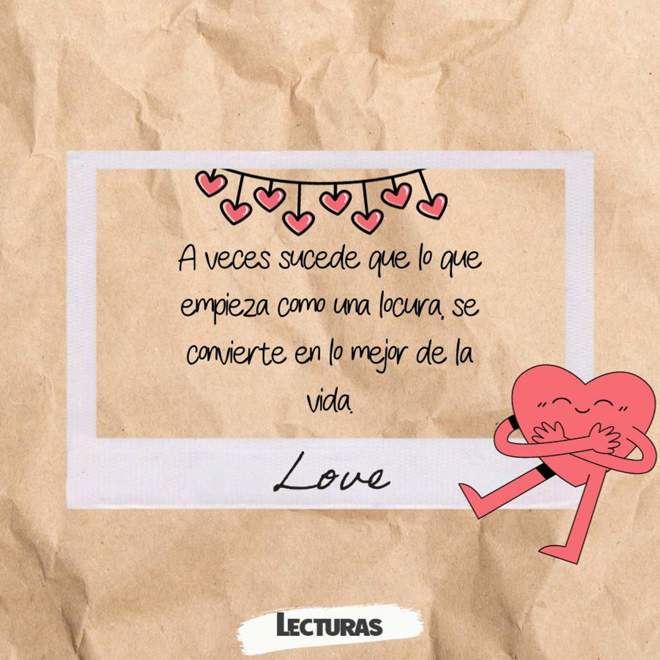 A veces sucede que lo que
empieza como una locura, se
convierte en lo mejor de la
vida.
Love
LECTURAS